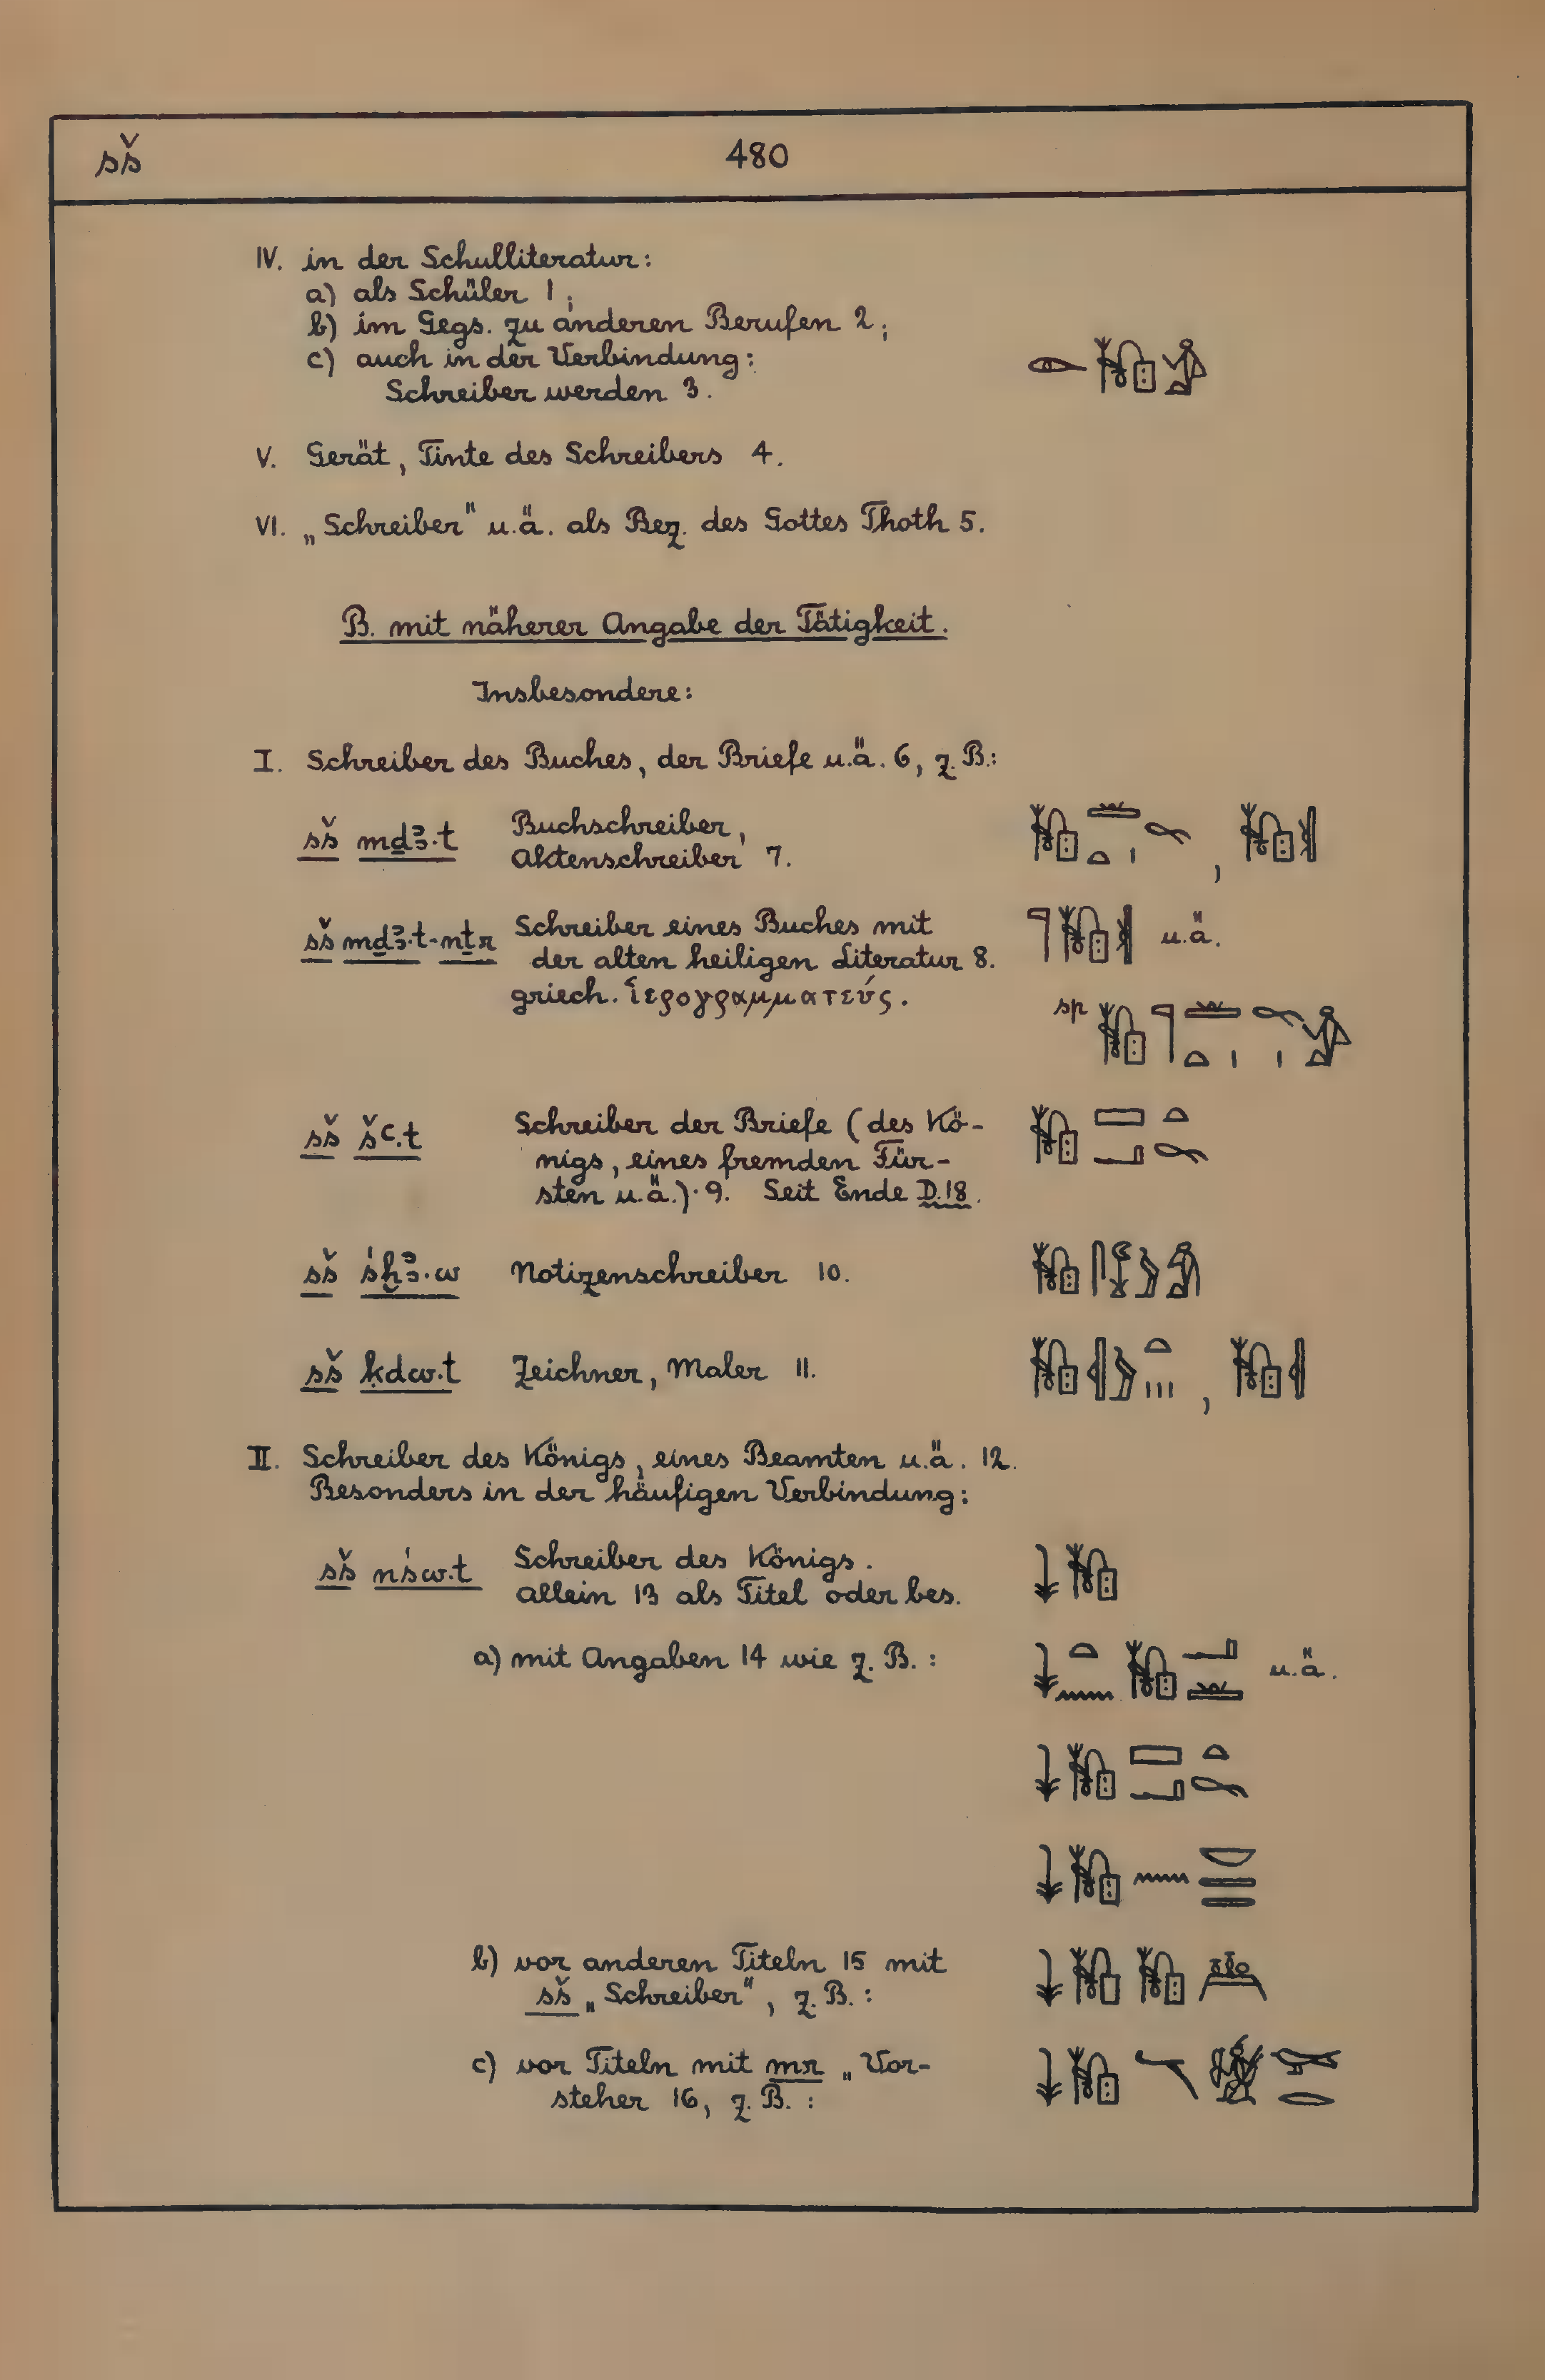 sš 480
IV. in der Schulliteratur:
a) als Schüler 1;
b) im Gegs. zu anderen Berufen 2;
c) auch in der Verbindung:
Schreiber werden 3.
V. Gerät, Tinte des Schreibers 4.
VI. „Schreiber" u.ä. als Bez. des Gottes Thoth 5.
B. mit näherer Angabe der Tätigkeit.
Insbesondere:
I. Schreiber des Buches, der Briefe u.ä. 6, z.B.:
sš mḏꜣ.t Buchschreiber,
Aktenschreiber 7.
sš mḏꜣ.t-nṯr Schreiber eines Buches mit u.ä.
der alten heiligen Literatur 8.
griech. ἱερογραμματεύς. sp
sš šꜥ.t Schreiber der Briefe (des Kö-
nigs, eines fremden Für-
sten u.ä.). 9. Seit Ende D.18.
sš śẖꜣ.w Notizenschreiber 10.
sš ḳdw.t Zeichner, Maler 11.
II. Schreiber des Königs, eines Beamten u.ä. 12.
Besonders in der häufigen Verbindung:
sš nśw.t Schreiber des Königs.
Allein 13 als Titel oder bes.
a) mit Angaben 14 wie z.B.: u.ä.
b) vor anderen Titeln 15 mit
sš „Schreiber", z.B.:
c) vor Titeln mit mr „Vor-
steher 16, z.B.: